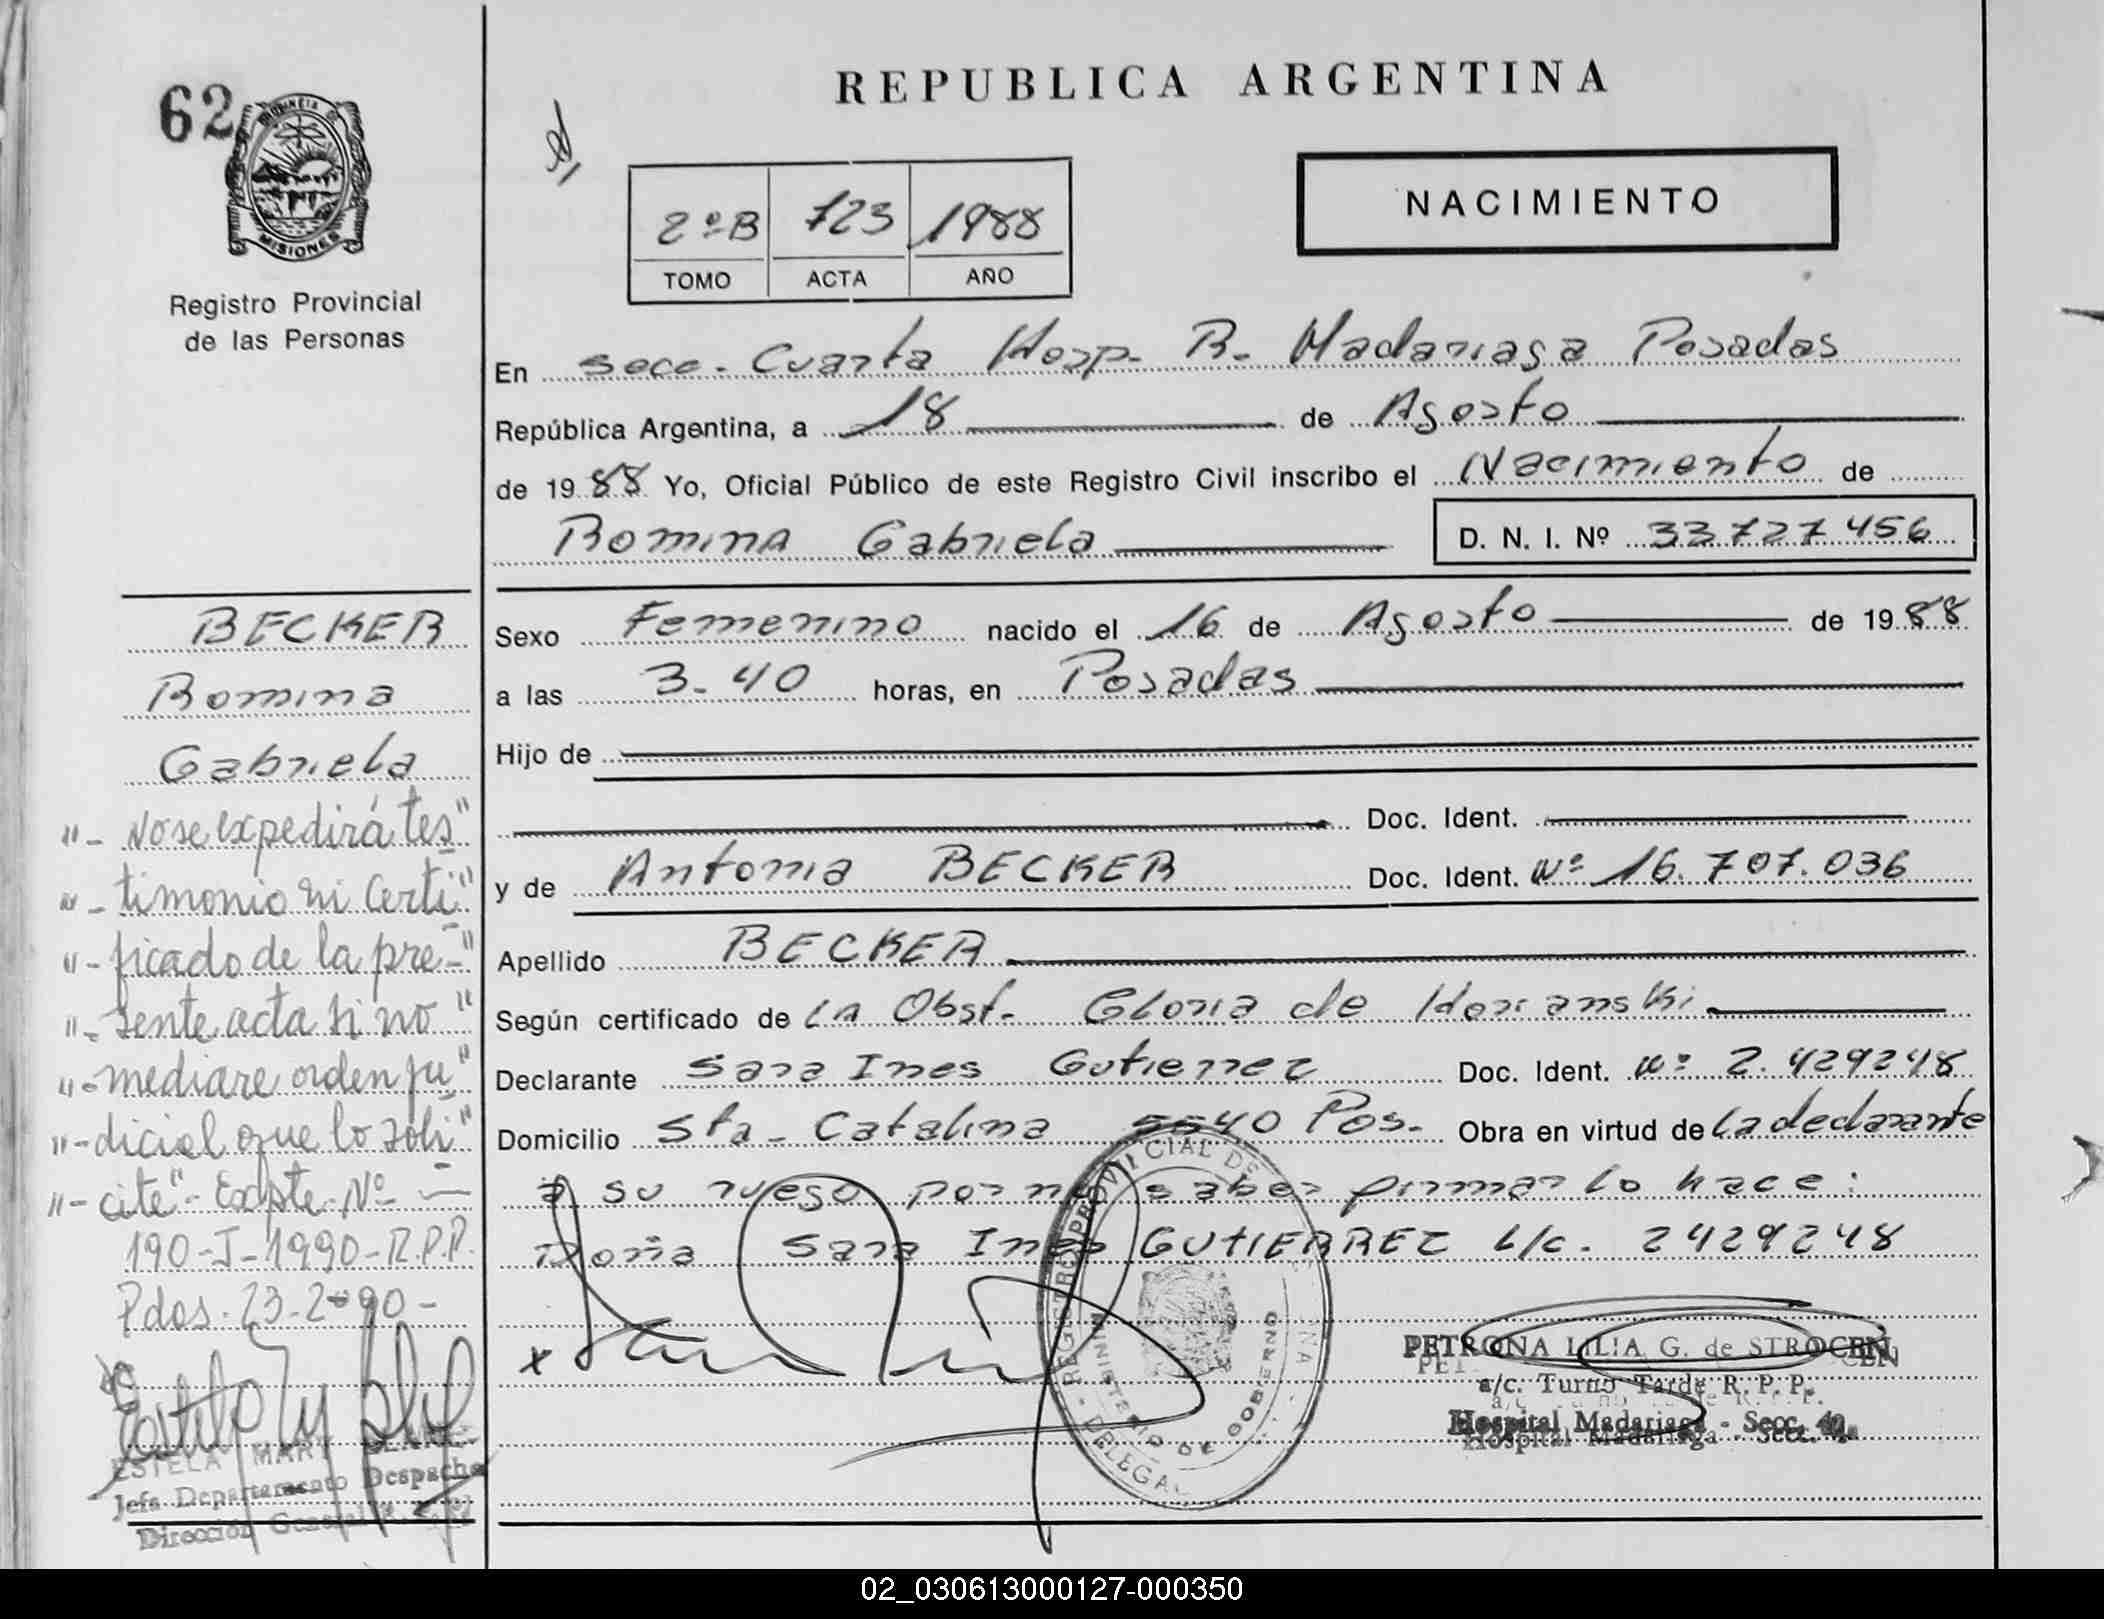 62
PROVINCIA DE
MISIONES
Registro Provincial
de las Personas
REPUBLICA ARGENTINA
NACIMIENTO
2ºB 723 1988
TOMO ACTA AÑO
En Secc. Cuarta Hosp. R. Madariaga Posadas
República Argentina, a 18 de Agosto
de 1988 Yo, Oficial Público de este Registro Civil inscribo el Nacimiento de
Romina Gabriela D. N. I. Nº 33727456
BECKER
Romina
Gabriela
"- No se expedirá tes"
"- timonio ni Certi"
"- ficado de la pre-"
"- sente acta si no "
"- mediare orden ju"
"- dicial que lo soli"
"- cite"- Expte. Nº
190-J-1990-R.P.P.
Pdas. 23-2-90-
ESTELA MARY
Jefa Departamento Despacho
Dirección General
Sexo Femenino nacido el 16 de Agosto de 1988
a las 3.40 horas, en Posadas
Hijo de
Doc. Ident.
y de Antonia BECKER Doc. Ident. Nº 16.707.036
Apellido BECKER
Según certificado de La Obst. Gloria de
Declarante Sara Ines Gutierrez Doc. Ident. Nº 2.429248
Domicilio Sta. Catalina 5540 Pos. Obra en virtud de La declarante
a su ruego por no saber firmar lo hace:
Doña Sara Ines GUTIERREZ L/c. 2429248
REGISTRO PROVINCIAL DE
MINISTERIO DE GOBIERNO
PETRONA LILIA G. de STROCEN
a/c. Turno Tarde R. P. P.
Hospital Madariaga - Secc. 4a.
02_030613000127-000350